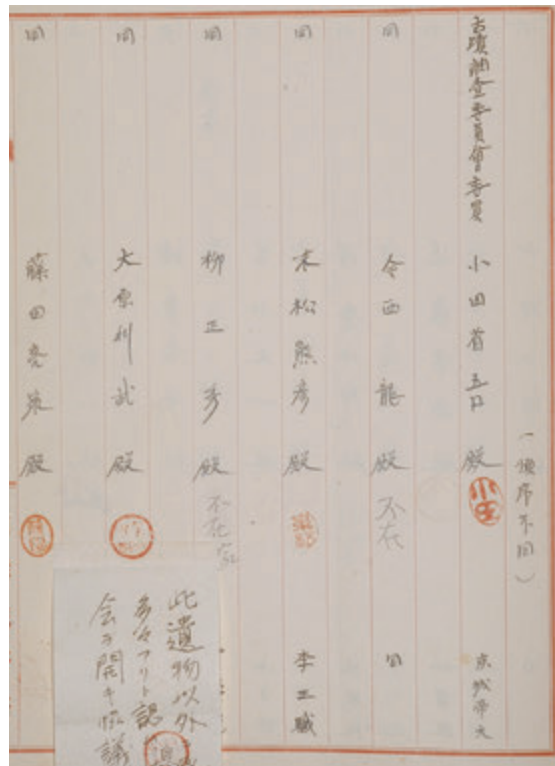 （順序不同）
古蹟調査委員會委員 小田省吾殿 小田 京城帝大
同 今西龍殿 不在 同
同 末松熊彦殿 李王職
同 柳正秀殿 不在
同 大原利武殿
同 藤田亮策殿
此遺物以外
多々アリト認
会ヲ開キ協議